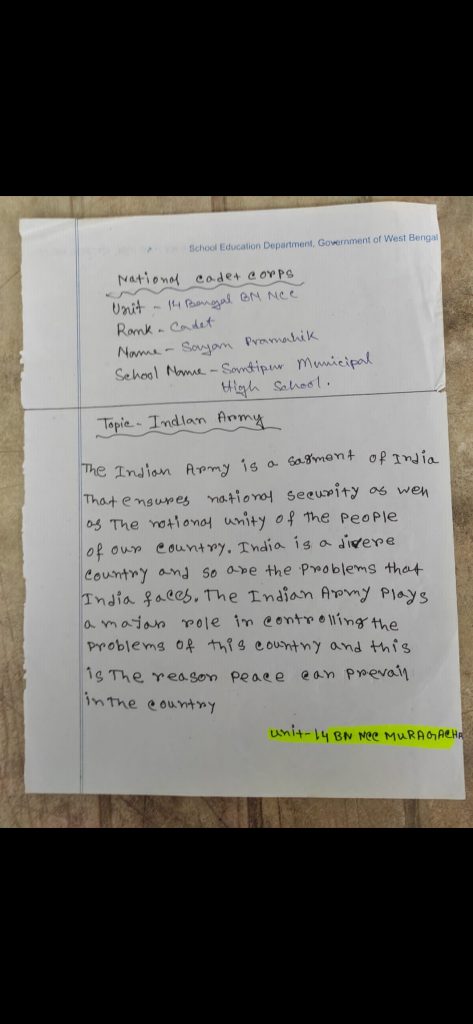 School Education Department, Government of West Bengal
National cadet corps
Unit - 14 Bengal BN NCC
Rank - Cadet
Name - Sayan Pramanik
School Name - Santipur Municipal
High School.
Topic - Indian Army
The Indian Army is a sagment of India
That ensures national security as well
as The notional unity of the People
of our country. India is a divere
country and so are the Problems that
India faces. The Indian Army Plays
a major role in controlling the
problems of this country and this
is The reason peace can prevail
in the country
unit-14 BN NCC MURAGACHA